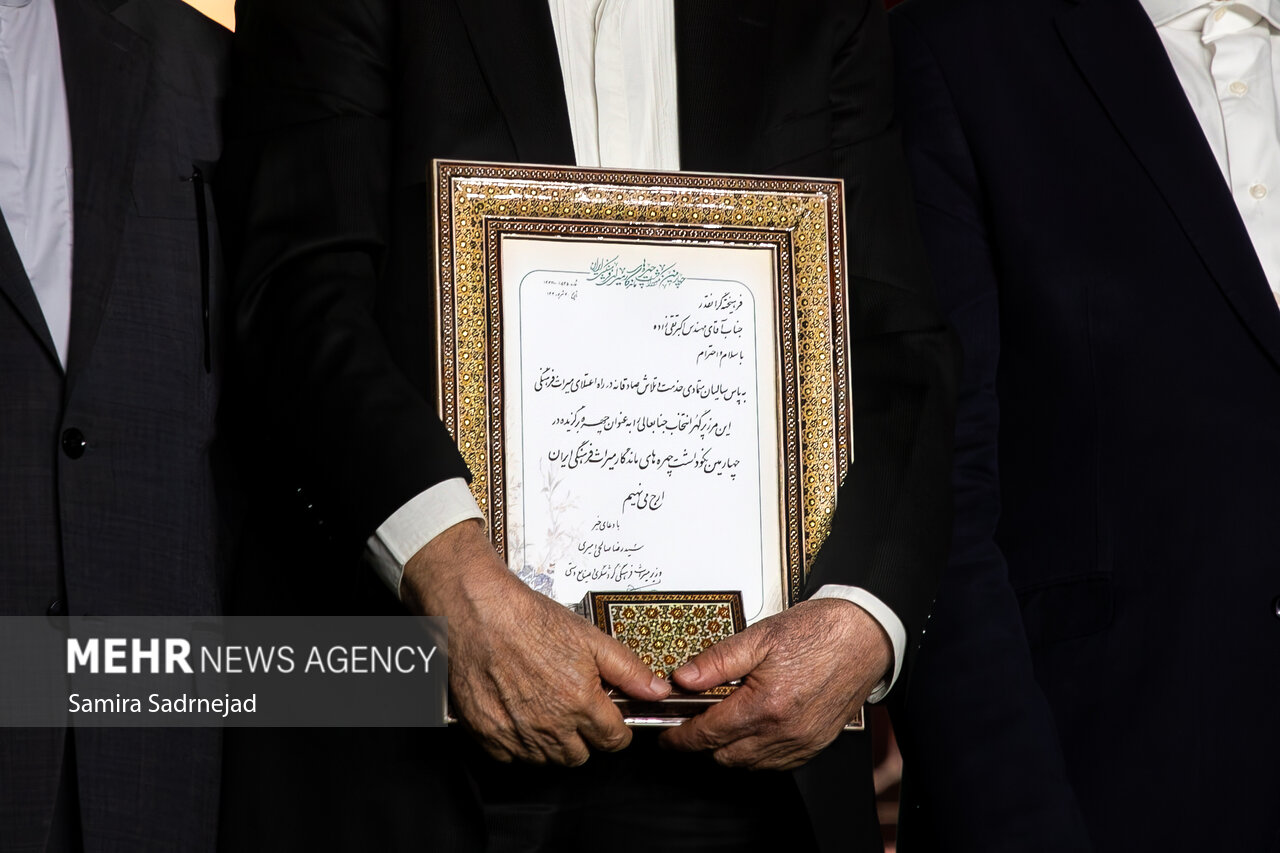 چهارمین نکوداشت چهره‌های ماندگار میراث فرهنگی ایران
فرهیخته گرانقدر
جناب آقای مهندس اکبر تقی زاده
با سلام و احترام
به پاس سالیان متمادی خدمت و تلاش صادقانه در راه اعتلای میراث فرهنگی
این مرز پرگهر انتخاب جنابعالی را به عنوان چهره برگزیده در
چهارمین نکوداشت چهره های ماندگار میراث فرهنگی ایران
ارج می نهیم
با دعای خیر
سید رضا صالحی امیری
وزیر میراث فرهنگی گردشگری و صنایع دستی
MEHR NEWS AGENCY
Samira Sadrnejad